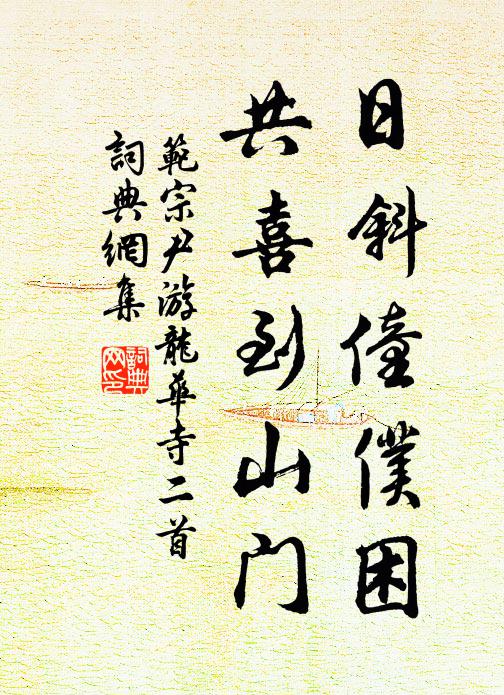 日斜僮僕困
共喜到山門
範宗尹游龍華寺二首
詞典網集
詞典网印